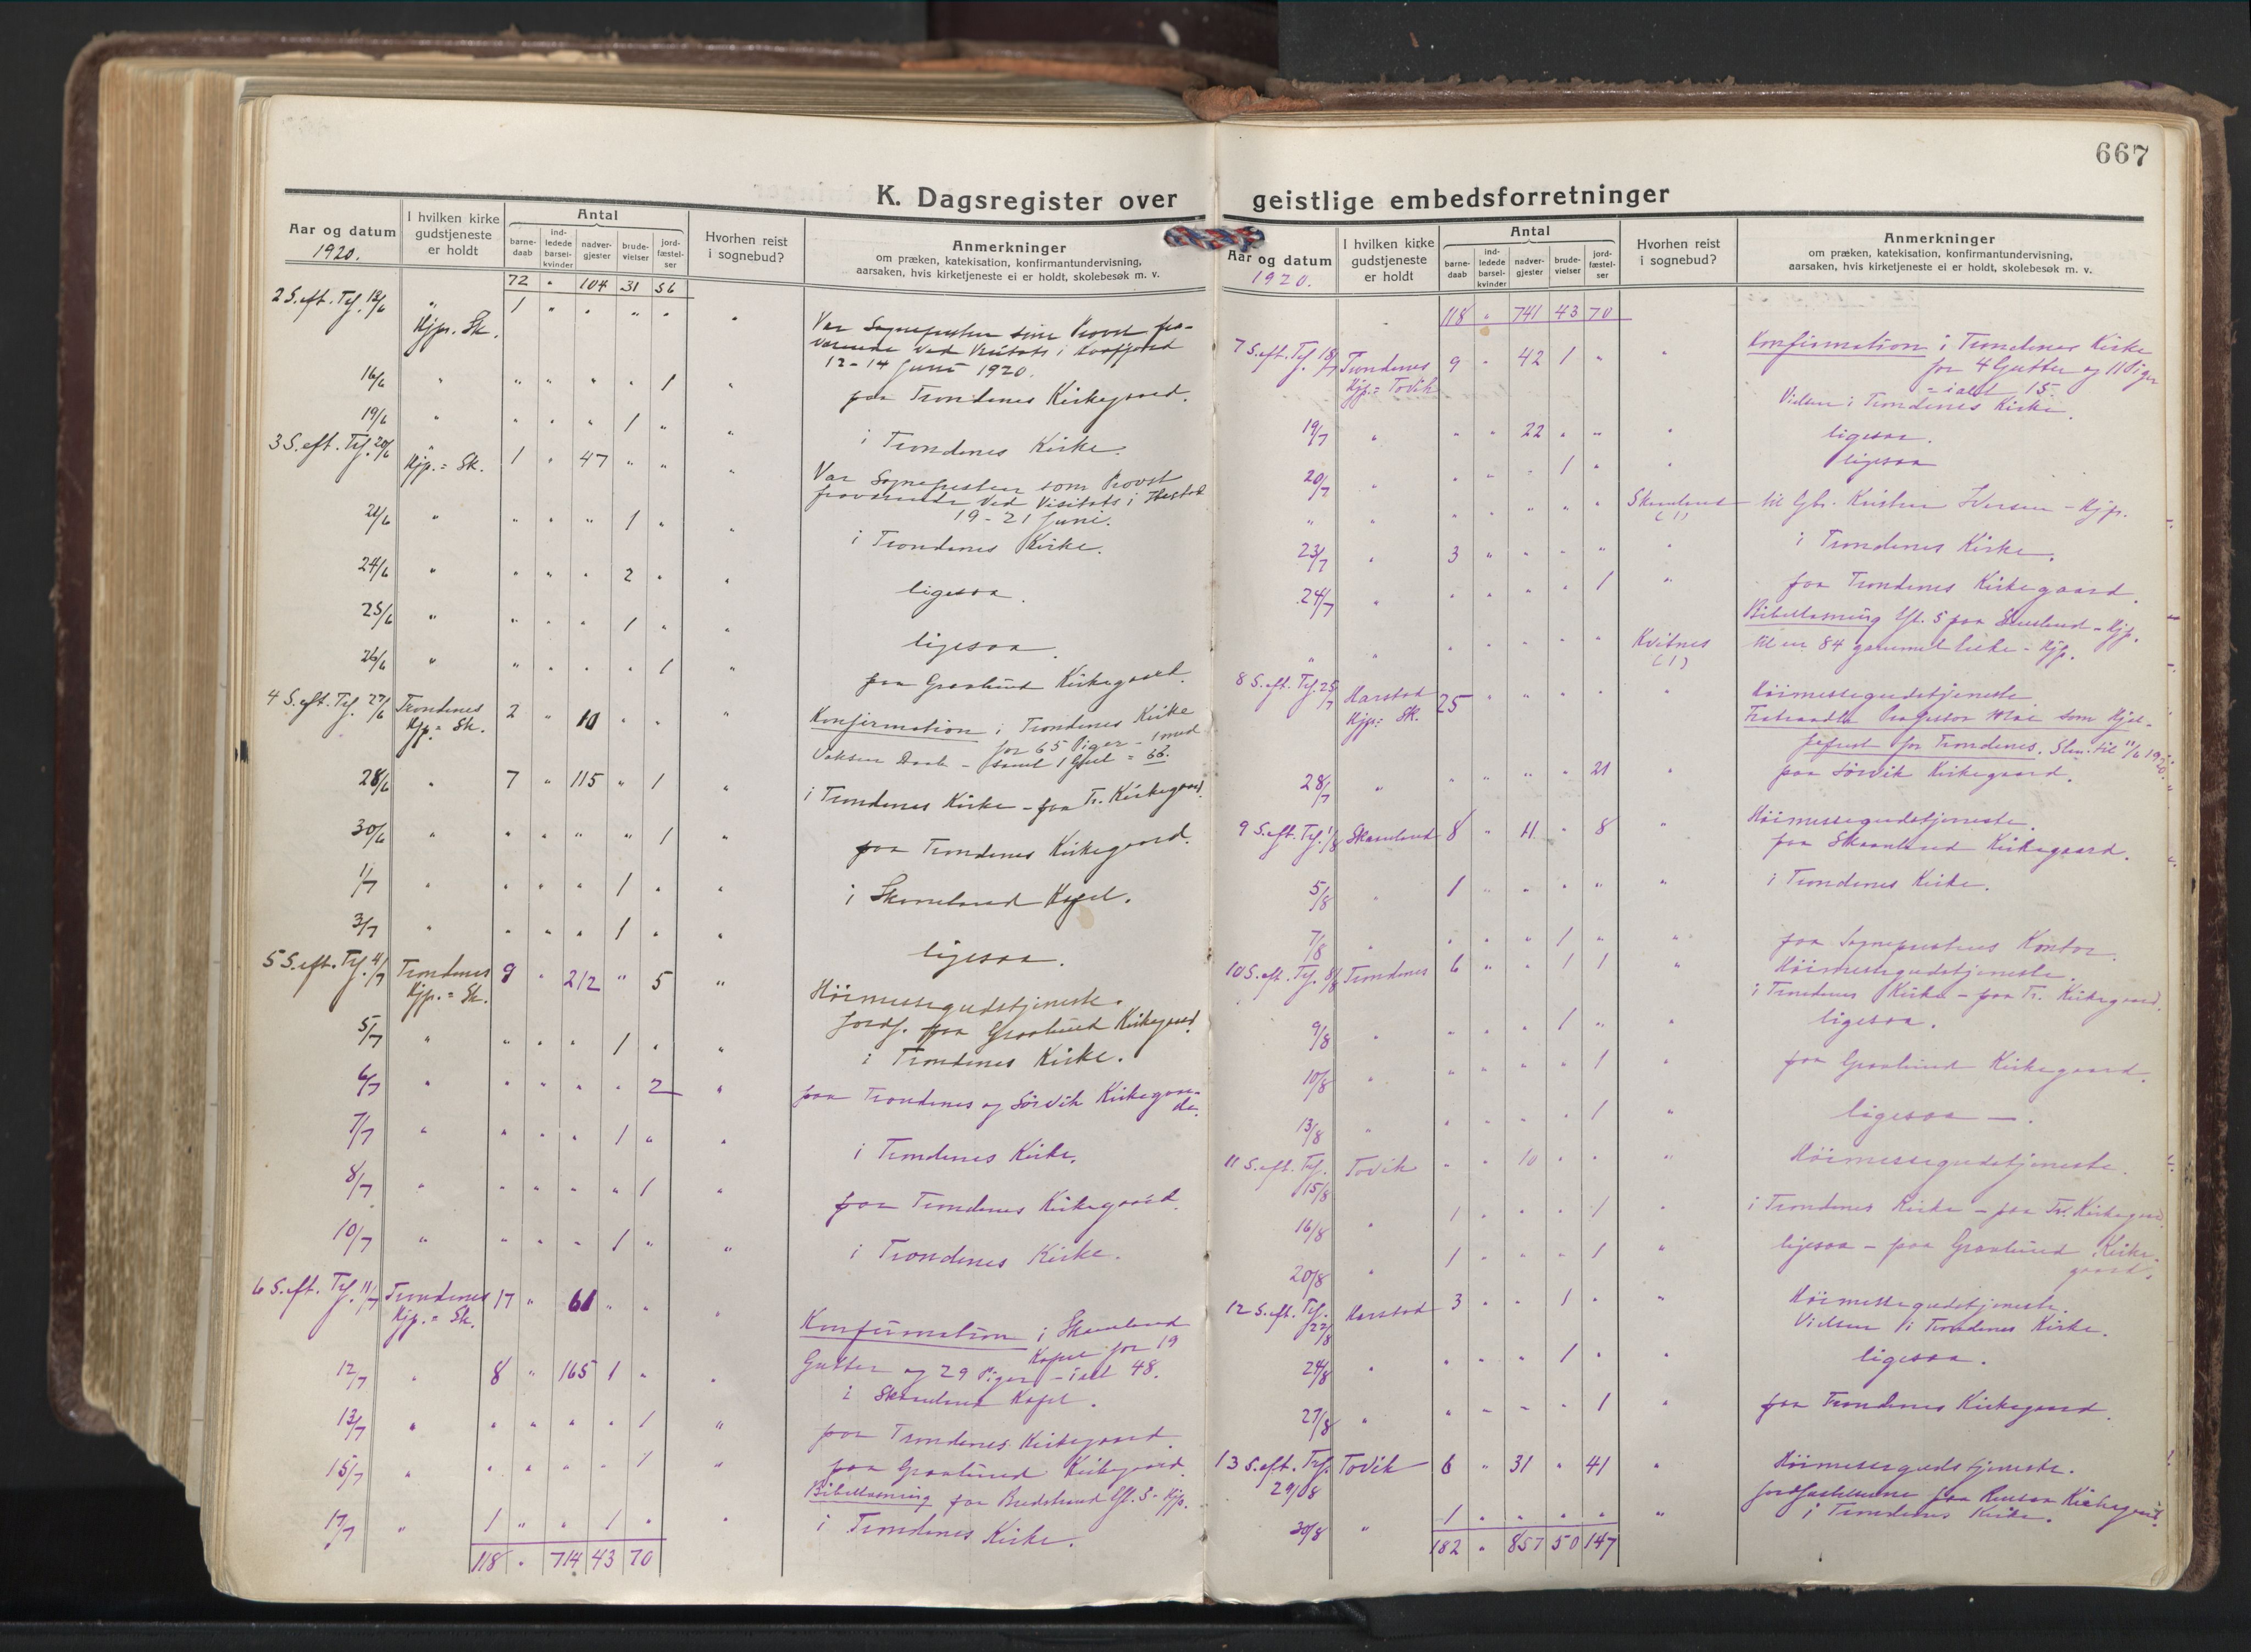 667
K. Dagsregister over geistlige embedsforretninger
Aar og datum
1920.
I hvilken kirke gudstjeneste er holdt
Antal
barne-daab
ind-ledede barsel-kvinder
nadver-gjester
brude-vielser
jord-fæstel-ser
Hvorhen reist i sognebud?
Anmerkninger
om præken, katekisation, konfirmantundervisning,
aarsaken, hvis kirketjeneste ei er holdt, skolebesøk m. v.
72 " 104 31 56
2 S. eft. Tf. 13/6 " 1 " " " " "
Hjp. Sk. Var Sognepresten som Provst fra-
værende ved Visitats i
12-14 Juni 1920.
16/6 " " " " " 1 " paa Trondenes Kirkegaard.
19/6 " " " " 1 " " i Trondenes Kirke.
3 S. eft. Tf. 20/6 " Hjp. = Sk. 1 " 47 " " " Var Sognepresten som Provst
fraværende ved Visitats i
19-21 Juni.
21/6 " " " " 1 " " i Trondenes Kirke.
24/6 " " " " 2 " " ligesaa.
25/6 " " " " 1 " " ligesaa.
26/6 " " " " " 1 " paa Graalund Kirkegaard.
4 S. eft. Tf. 27/6 Trondenes 2 " 10 " " " Konfirmation i Trondenes Kirke
Hjp. = Sk. for 65 Piger - 1 med
Voksen Daab - samt 1 Gut = 66.
28/6 " 7 " 115 " 1 " i Trondenes Kirke - paa Tr. Kirkegaard.
30/6 " " " " " 1 " paa Trondenes Kirkegaard.
1/7 " " " " 1 " " i Skaanland Kapel.
3/7 " " " " 1 " " ligesaa.
5 S. eft. Tf. 4/7 Trondenes 9 " 212 " 5 " Höimessegudstjeneste.
Hjp. = Sk. Jordf. paa Graalund Kirkegaard.
5/7 " " " " 1 " " i Trondenes Kirke.
6/7 " " " " " 2 " paa Trondenes og Sörvik Kirkegaar-
de.
7/7 " " " " 1 " " i Trondenes Kirke.
8/7 " " " " " 1 " paa Trondenes Kirkegaard.
10/7 " " " " 1 " " i Trondenes Kirke.
6 S. eft. Tf. 11/7 Trondenes 17 " 61 " " " Konfirmation i Skaanland
Hjp. = Sk. Kapel for 19
Gutter og 29 Piger - ialt 48.
12/7 " 8 " 165 1 " " i Skaanland Kapel.
13/7 " " " " " 1 " paa Trondenes Kirkegaard.
15/7 " " " " " 1 " paa Graalund Kirkegaard.
Bibellæsning paa Bredstrand Hjp.
17/7 " 1 " " 1 " " i Trondenes Kirke.
118 " 714 43 70
Aar og datum
1920.
I hvilken kirke gudstjeneste er holdt
Antal
barne-daab
ind-ledede barsel-kvinder
nadver-gjester
brude-vielser
jord-fæstel-ser
Hvorhen reist i sognebud?
Anmerkninger
om præken, katekisation, konfirmantundervisning,
aarsaken, hvis kirketjeneste ei er holdt, skolebesøk m. v.
118 " 741 43 70
7 S. eft. Tf. 18/7 Trondenes 9 " 42 1 " " Konfirmation i Trondenes Kirke
Hjp. = Tovik for 4 Gutter og 11 Piger
= ialt 15
Vielsen i Trondenes Kirke.
19/7 " " " 22 " " " ligesaa.
20/7 " " " " 1 " " ligesaa
" " " " " " " Skaanland (1) til Iversen - Hjp.
23/7 " 3 " " " " " i Trondenes Kirke.
24/7 " " " " " 1 " paa Trondenes Kirkegaard.
Bibellæsning Kl. 5 paa - Hjp.
" " " " " " " Kvitnes (1) til en 84 - Hjp.
8 S. eft. Tf. 25/7 Harstad 25 " " " " " Höimessegudstjeneste
Hjp. = Sk. Fratraadte som Hjel-
peprest for Trondenes. til 11/6 1920.
28/7 " " " " " 21 " paa Sörvik Kirkegaard.
9 S. eft. Tf. 1/8 Skaanland 8 " 11 " 8 " Höimessegudstjeneste.
paa Skaanland Kirkegaard.
5/8 " 1 " " " " " i Trondenes Kirke.
7/8 " " " " 1 " " paa Sogneprestens Kontor.
10 S. eft. Tf. 8/8 Trondenes 6 " " 1 1 " Höimessegudstjeneste.
i Trondenes Kirke - paa Tr. Kirkegaard.
9/8 " " " " 1 " " ligesaa.
10/8 " " " " " 1 " paa Graalund Kirkegaard.
13/8 " " " " " 1 " ligesaa -.
11 S. eft. Tf. 15/8 Tovik " " 10 " " " Höimessegudstjeneste.
16/8 " 1 " " " 1 " i Trondenes Kirke - paa Tr. Kirkegaard.
20/8 " 1 " " " 1 " ligesaa - paa Graalund Kirke-
gaard.
12 S. eft. Tf. 22/8 Harstad 3 " " 1 " " Höimessegudstjeneste.
Vielsen i Trondenes Kirke.
24/8 " " " " 1 " " ligesaa.
27/8 " " " " " 1 " paa Trondenes Kirkegaard.
13 S. eft. Tf. 29/8 Tovik 6 " 31 " 41 " Höimessegudstjeneste.
Jordfæstelserne paa Kirkegaard.
30/8 " 1 " " " " " i Trondenes Kirke.
182 " 857 50 147